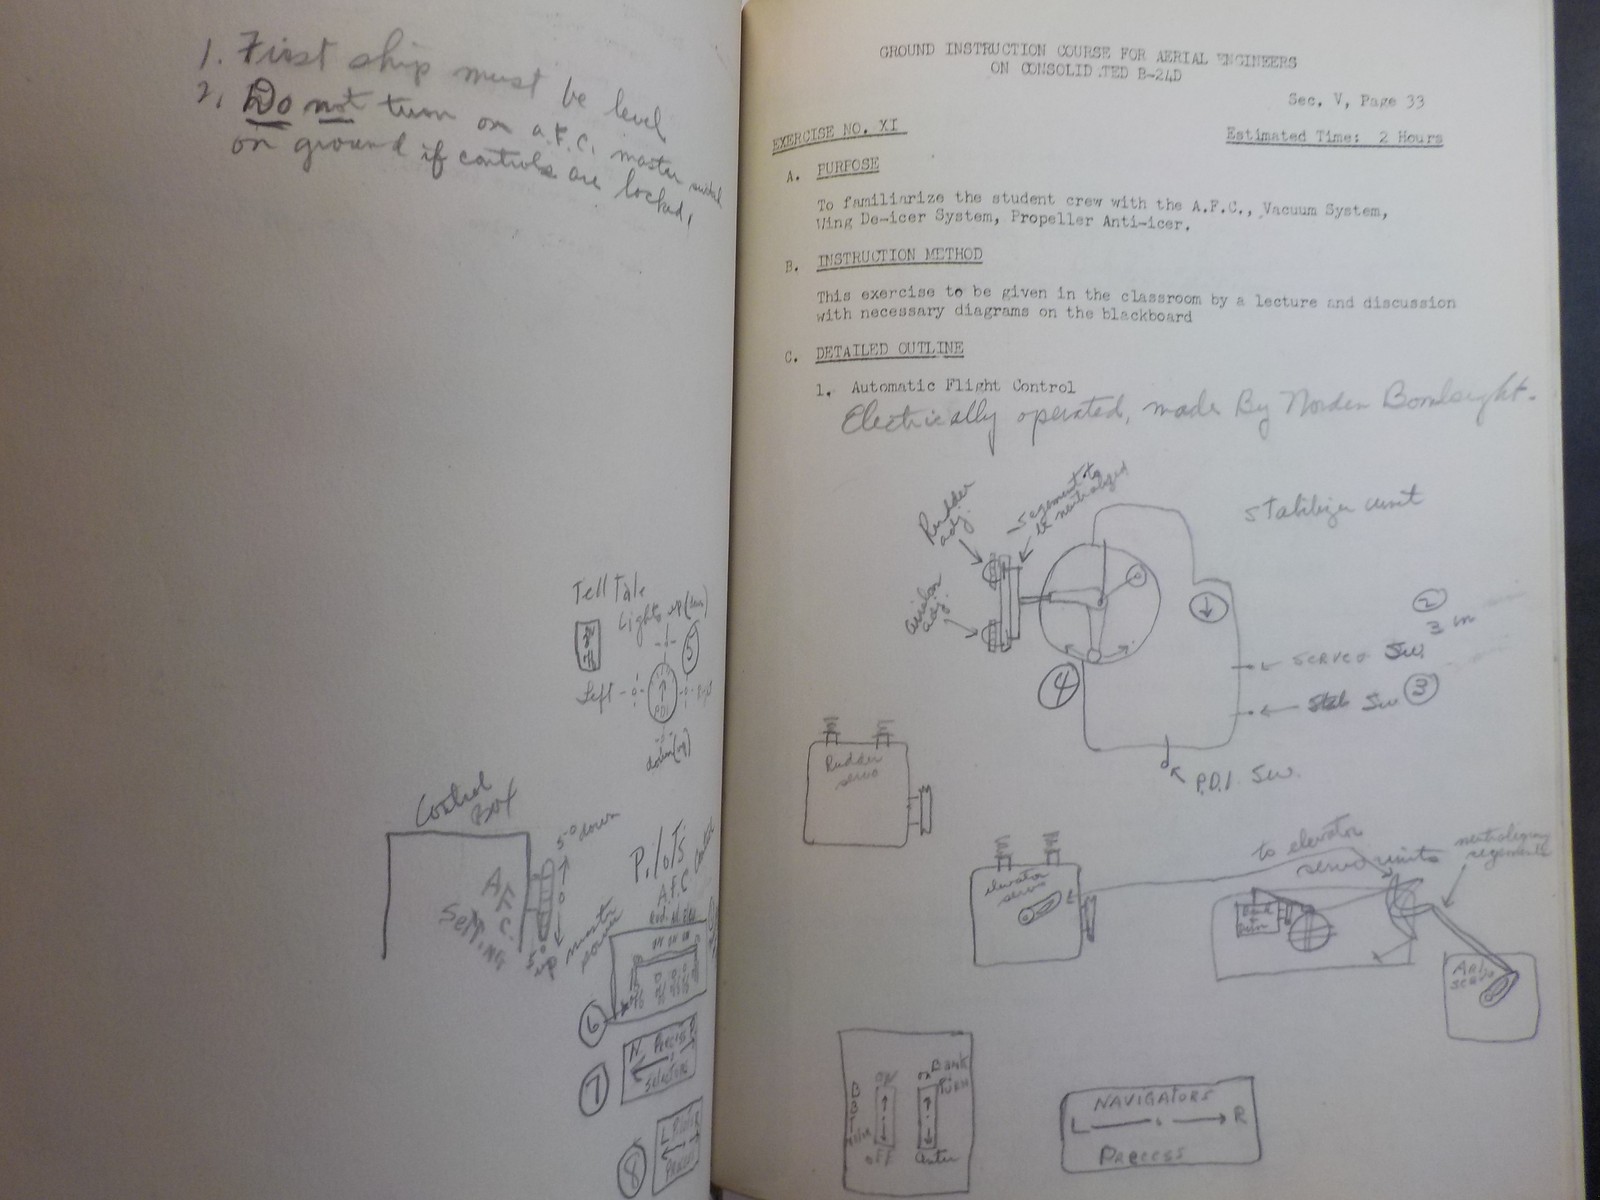 1. First ship must be level
2. Do not turn on a.F.C. master switch
on ground if controls are locked.
Tell Tale
Lights up
5
Left
PDI
Control
Box
5° down
0
5° up
A.F.C.
SETTING
Pilots
A.F.C
Control
master
6
7
N. Precis
8
GROUND INSTRUCTION COURSE FOR AERIAL ENGINEERS
ON CONSOLID TED B-24D
Sec. V, Page 33
EXERCISE NO. XI
Estimated Time: 2 Hours
A. PURPOSE
To familiarize the student crew with the A.F.C., Vacuum System,
Wing De-icer System, Propeller Anti-icer.
B. INSTRUCTION METHOD
This exercise to be given in the classroom by a lecture and discussion
with necessary diagrams on the blackboard
C. DETAILED OUTLINE
1. Automatic Flight Control
Electrically operated, made By Norden Bombsight.
Rudder
adj.
segment to
be neutralized
stabilizer unit
adj.
2
3 m
servo Sw.
4
Stab Sw 3
P.D.I. Sw.
Rudder
servo
elevator
servo
to elevator
servo units
ON
OFF
on
Bank
TURN
Center
NAVIGATORS
L R
PRECESS